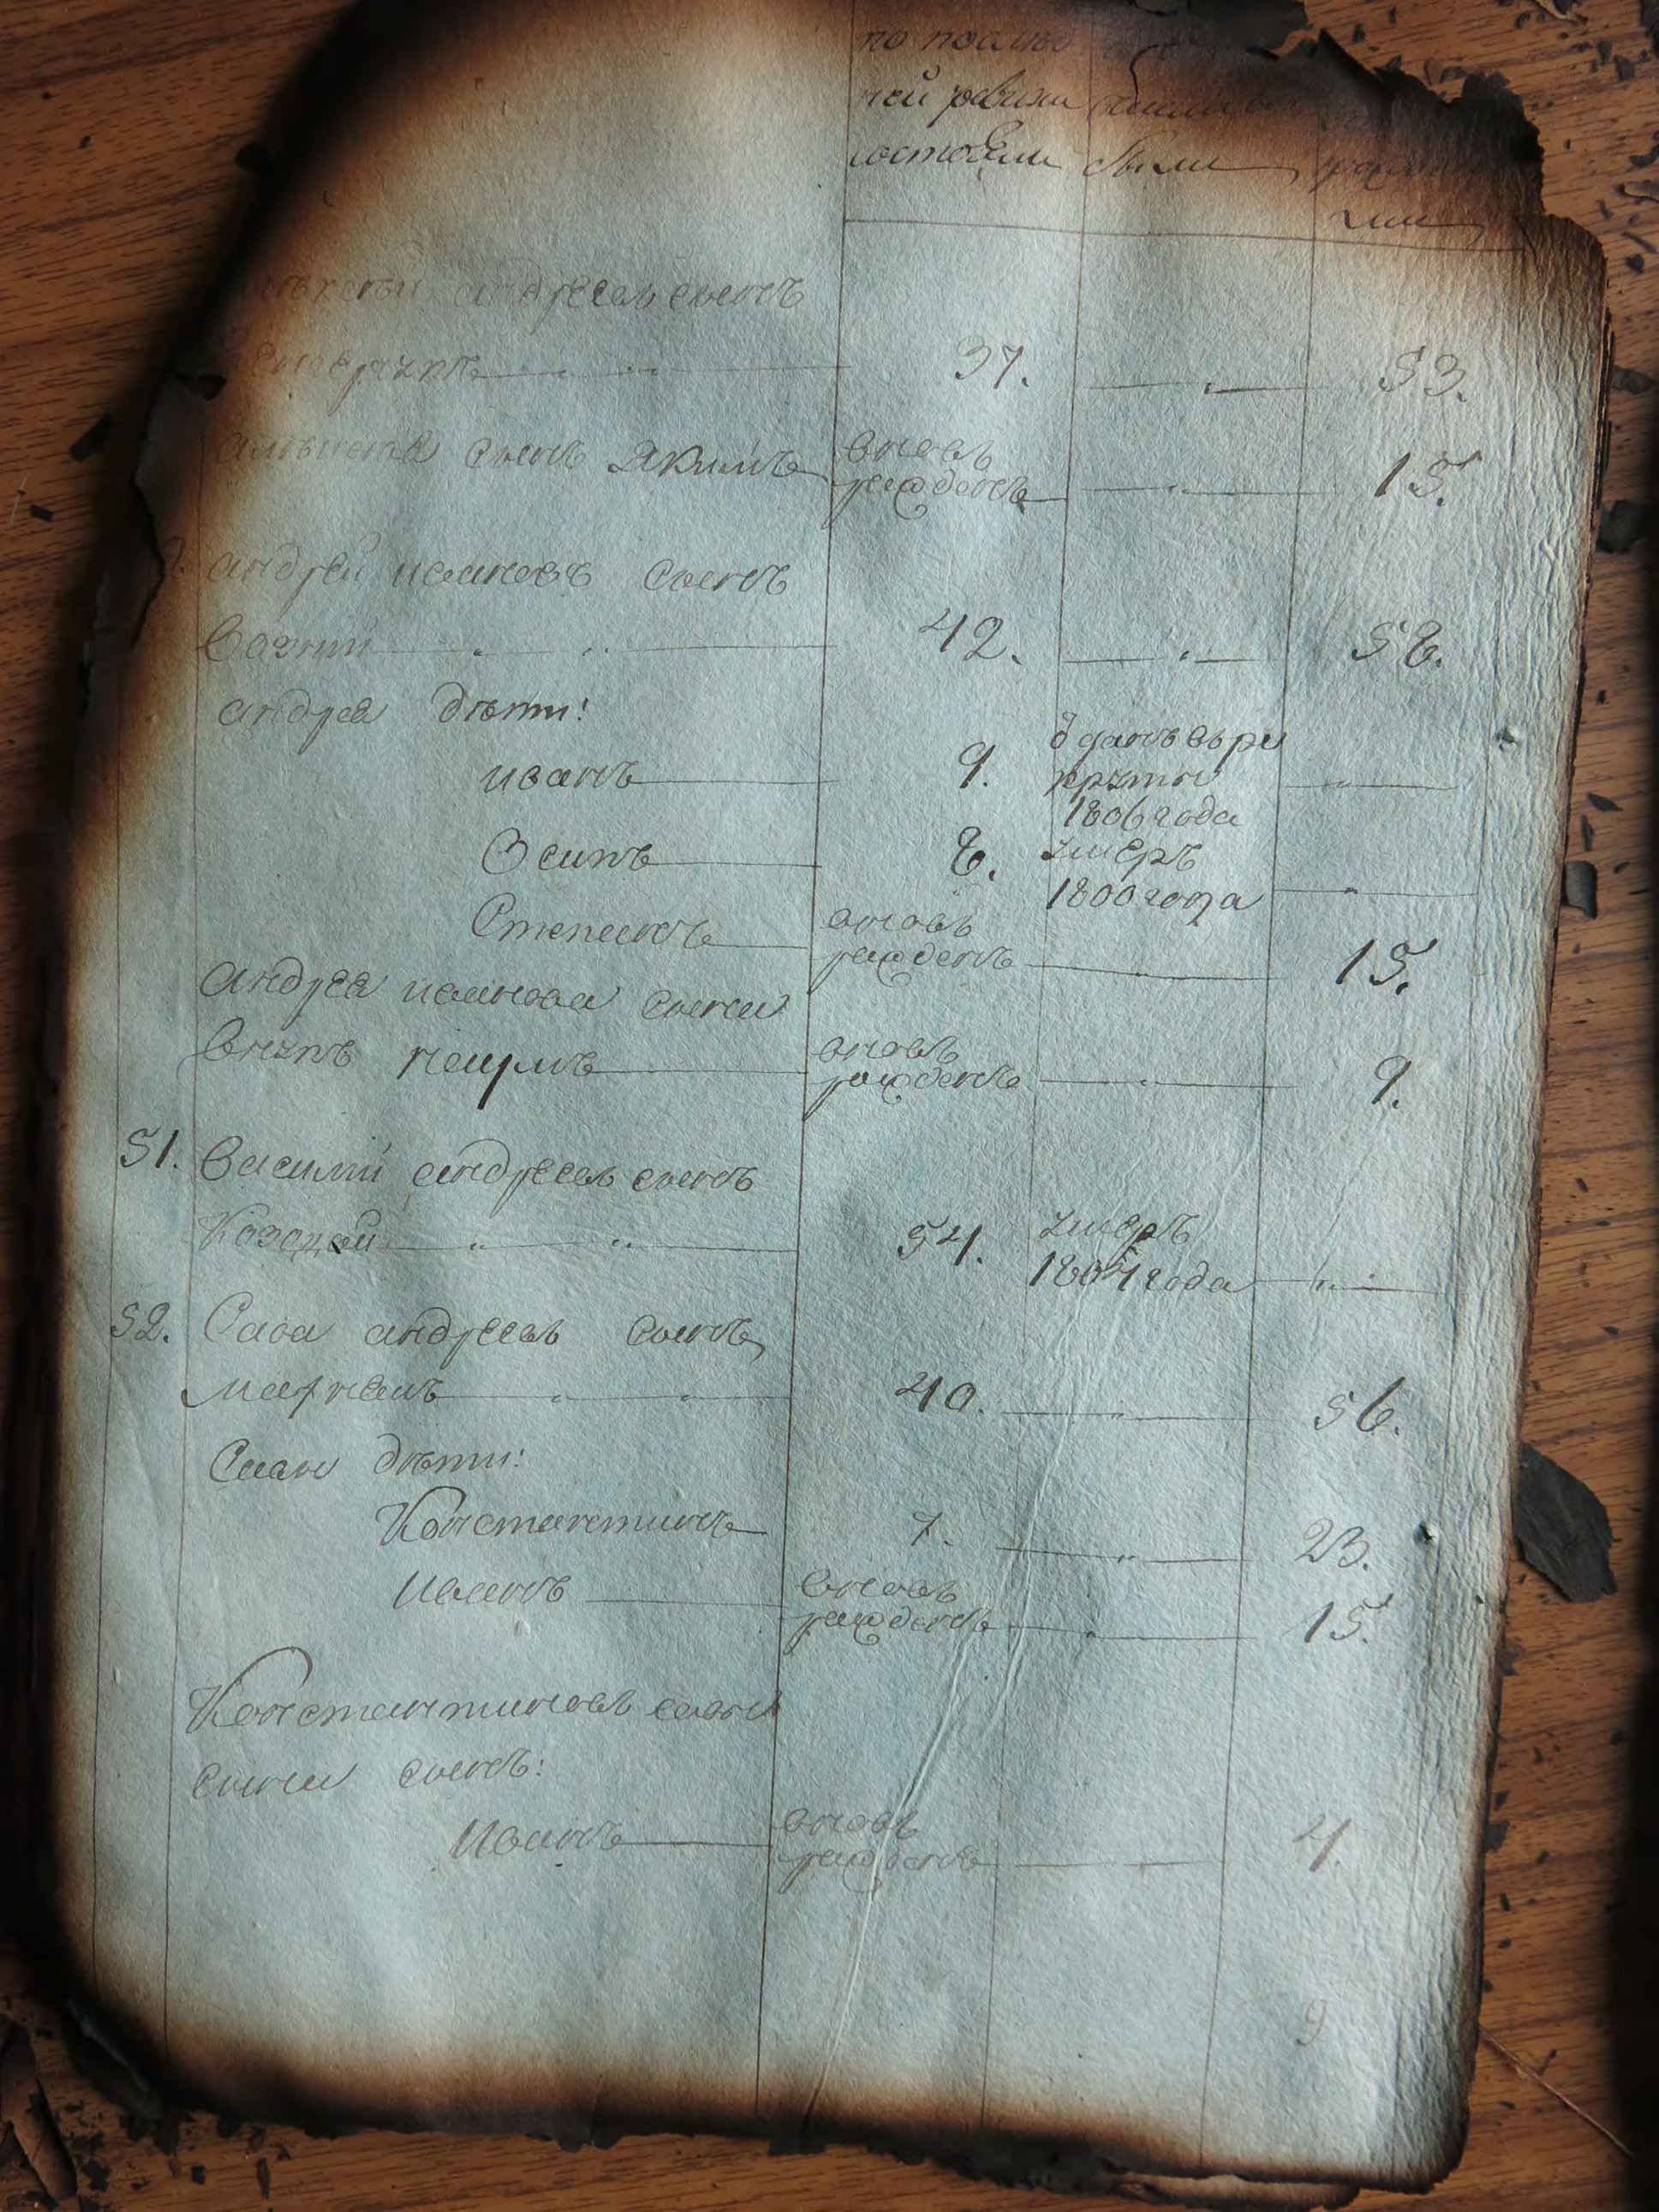 по послѣд
ней ревизіи
состояли были
лицо
андреевъ сынъ
37. 53.
сынъ Якимъ вновь
рожденъ 15.
андрей ивановъ сынъ
Возний 42. 58.
андрея дѣти:
иванъ 9. отданъ въ ре
круты
1806 года
Осипъ 8. умеръ
1800 года
Степанъ вновь
рожденъ 15.
андрея иванова сына
внукъ наумъ вновь
рожденъ 9.
51. Василий андреевъ сынъ
54. умеръ
1804 года
52. Сава андреевъ сынъ
40. 56.
Савы дѣти:
Константинъ 7. 23.
иванъ вновь
рожденъ 15.
Константиновъ савы
сына сынъ:
Иванъ вновь
рожденъ 4.
9